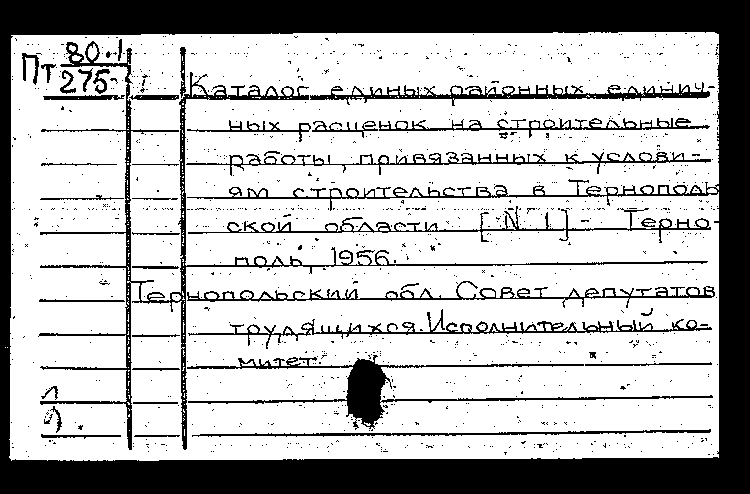 Пт 80.1
275
Каталог единых районных единич-
ных расценок на строительные
работы, привязанных к услови-
ям строительства в Тернополь
ской области [N 1] - Терно-
поль, 1956.
Тернопольский обл. Совет депутатов
трудящихся. Исполнительный ко-
митет.